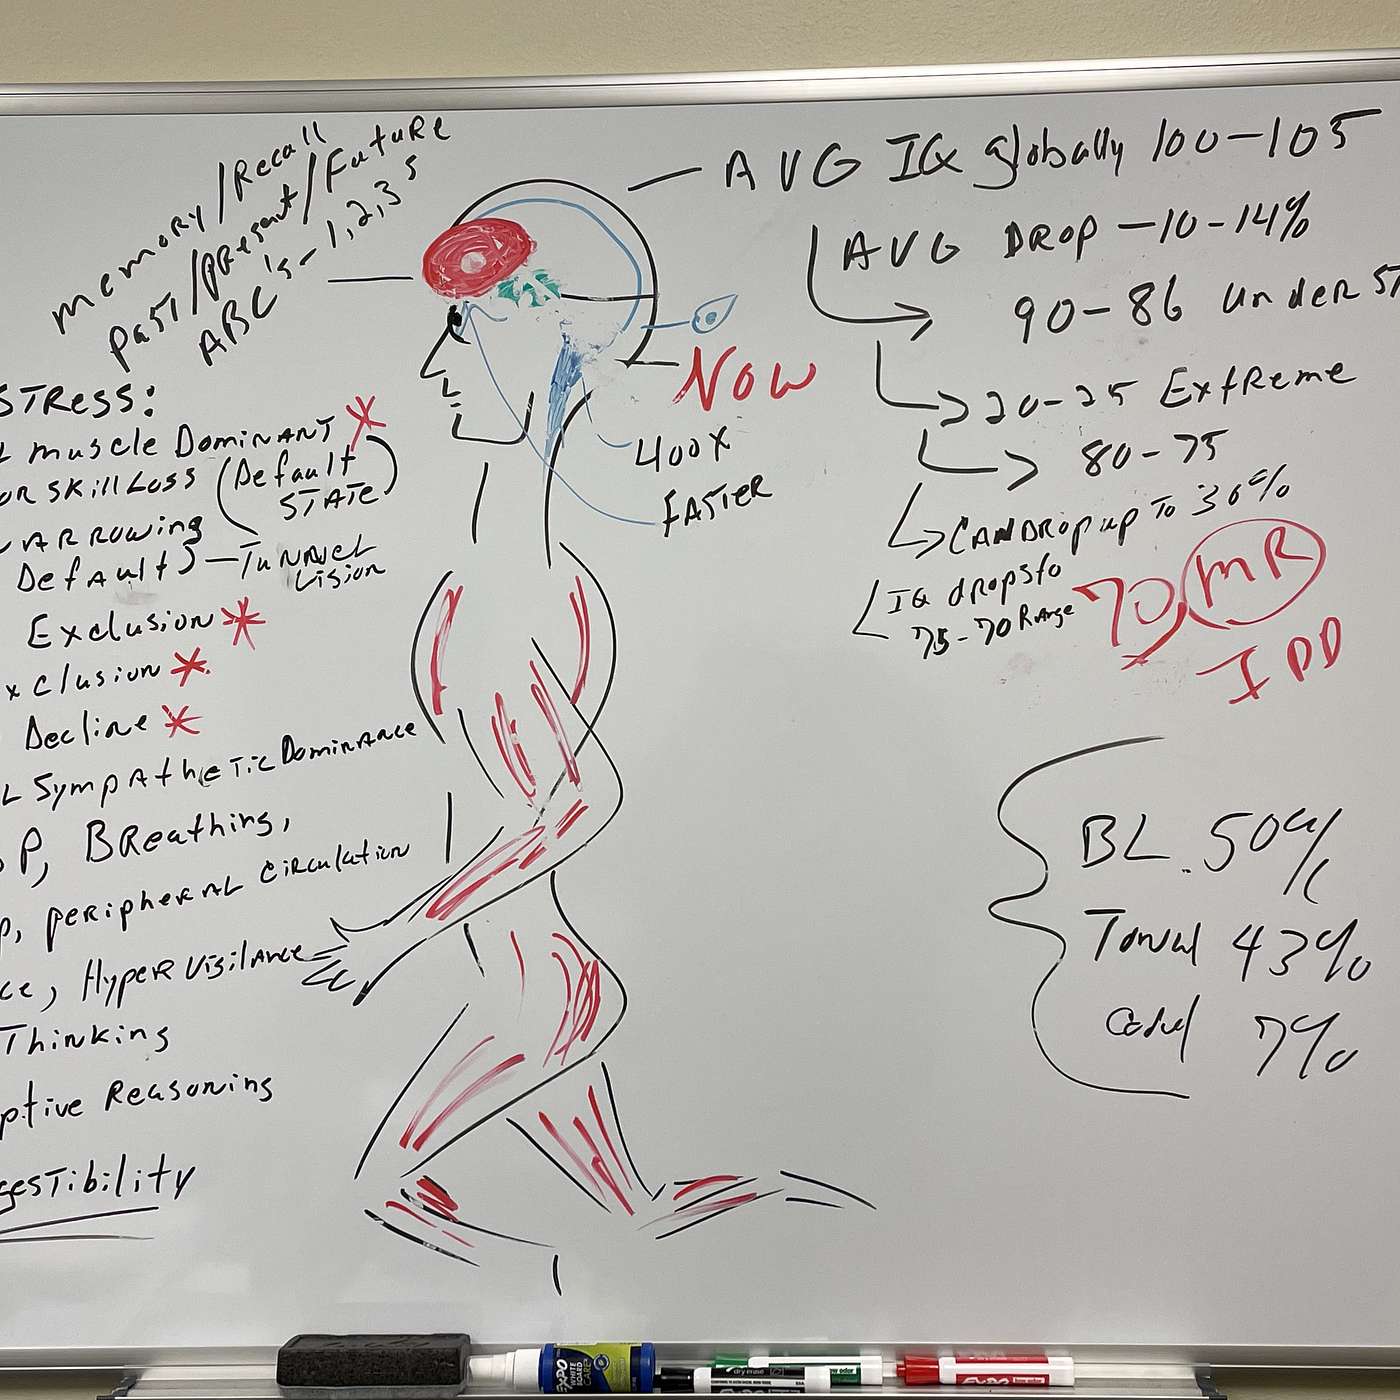 memory/Recall
past/present/Future
ABC's - 1,2,3's
STRess:
L muscle DOMINANT
OR SKill Loss (Default STATE)
NARROWing
Default) - TUNNEL Vision
Exclusion
xclusion
Decline
L SympAtheTic DominANce
P, BReathing,
p, peRipheRAL CiRculation
ce, HypeR VigilANce
Thinking
ptive Reasoning
gesTibility
AVG IQ globally 100-105
AVG DROP -10-14%
90-86 under ST
20-25 ExtReme
80-75
CAN DROP up To 30%
IQ drops to
75-70 Range
70 MR
IDD
NOW
400X
FASTER
BL. 50%
Tonal 43%
7%
EXPO
WHITE BOARD CARE
dry erase
low odor
EXPO